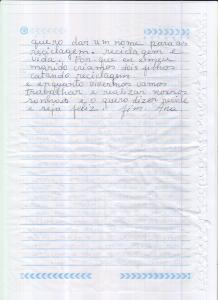 quero dar um nome para as
reciclagem. reciclagem e
vida. Por que eu e meu
marido criamos dois filhos
catando reciclagem
e enquanto vivermos vamos
trabalhar e realizar nossos
sonhos e o quero dizer
e seja feliz. fim. Ana